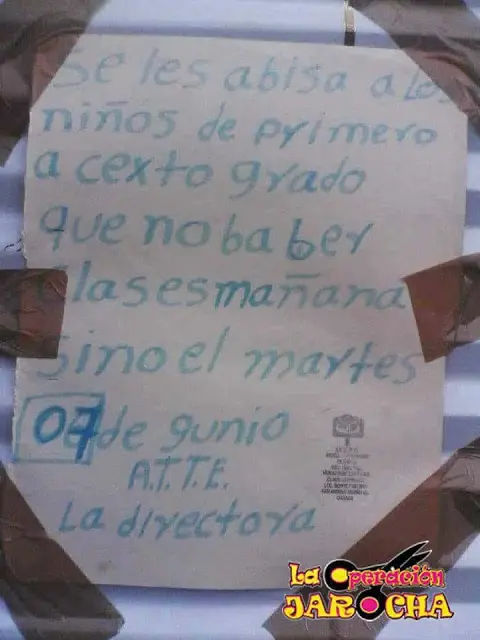 Se les abisa a Los
niños de primero
a cexto grado
que no ba ber
Clases mañana
Sino el martes
07 de gunio
A.T.T.E.
La directora
La Operación
JAROCHA